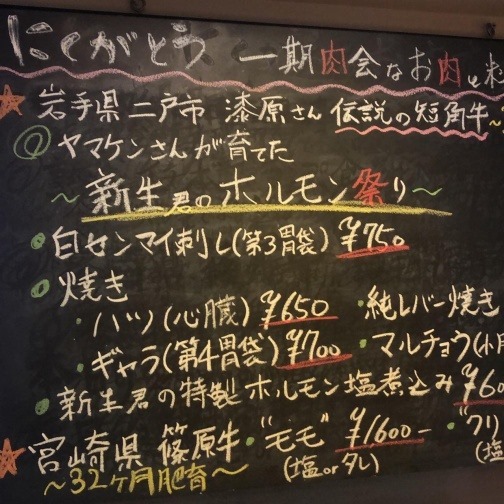 にくがとう 一期肉会なお肉と料
岩手県二戸市 漆原さん 伝説の短角牛~
① ヤマケンさんが育てた
~新生君のホルモン祭り~
・白センマイ刺し(第3胃袋) ¥750
・焼き
・ハツ(心臓) ¥650 ・純レバー焼き
・ギャラ(第4胃袋) ¥700 ・マルチョウ(小
・新生君の特製ホルモン塩煮込み ¥60
宮崎県 篠原牛・"モモ" ¥1600- ・"クリ
~32ヶ月肥育~ (塩orタレ) (塩